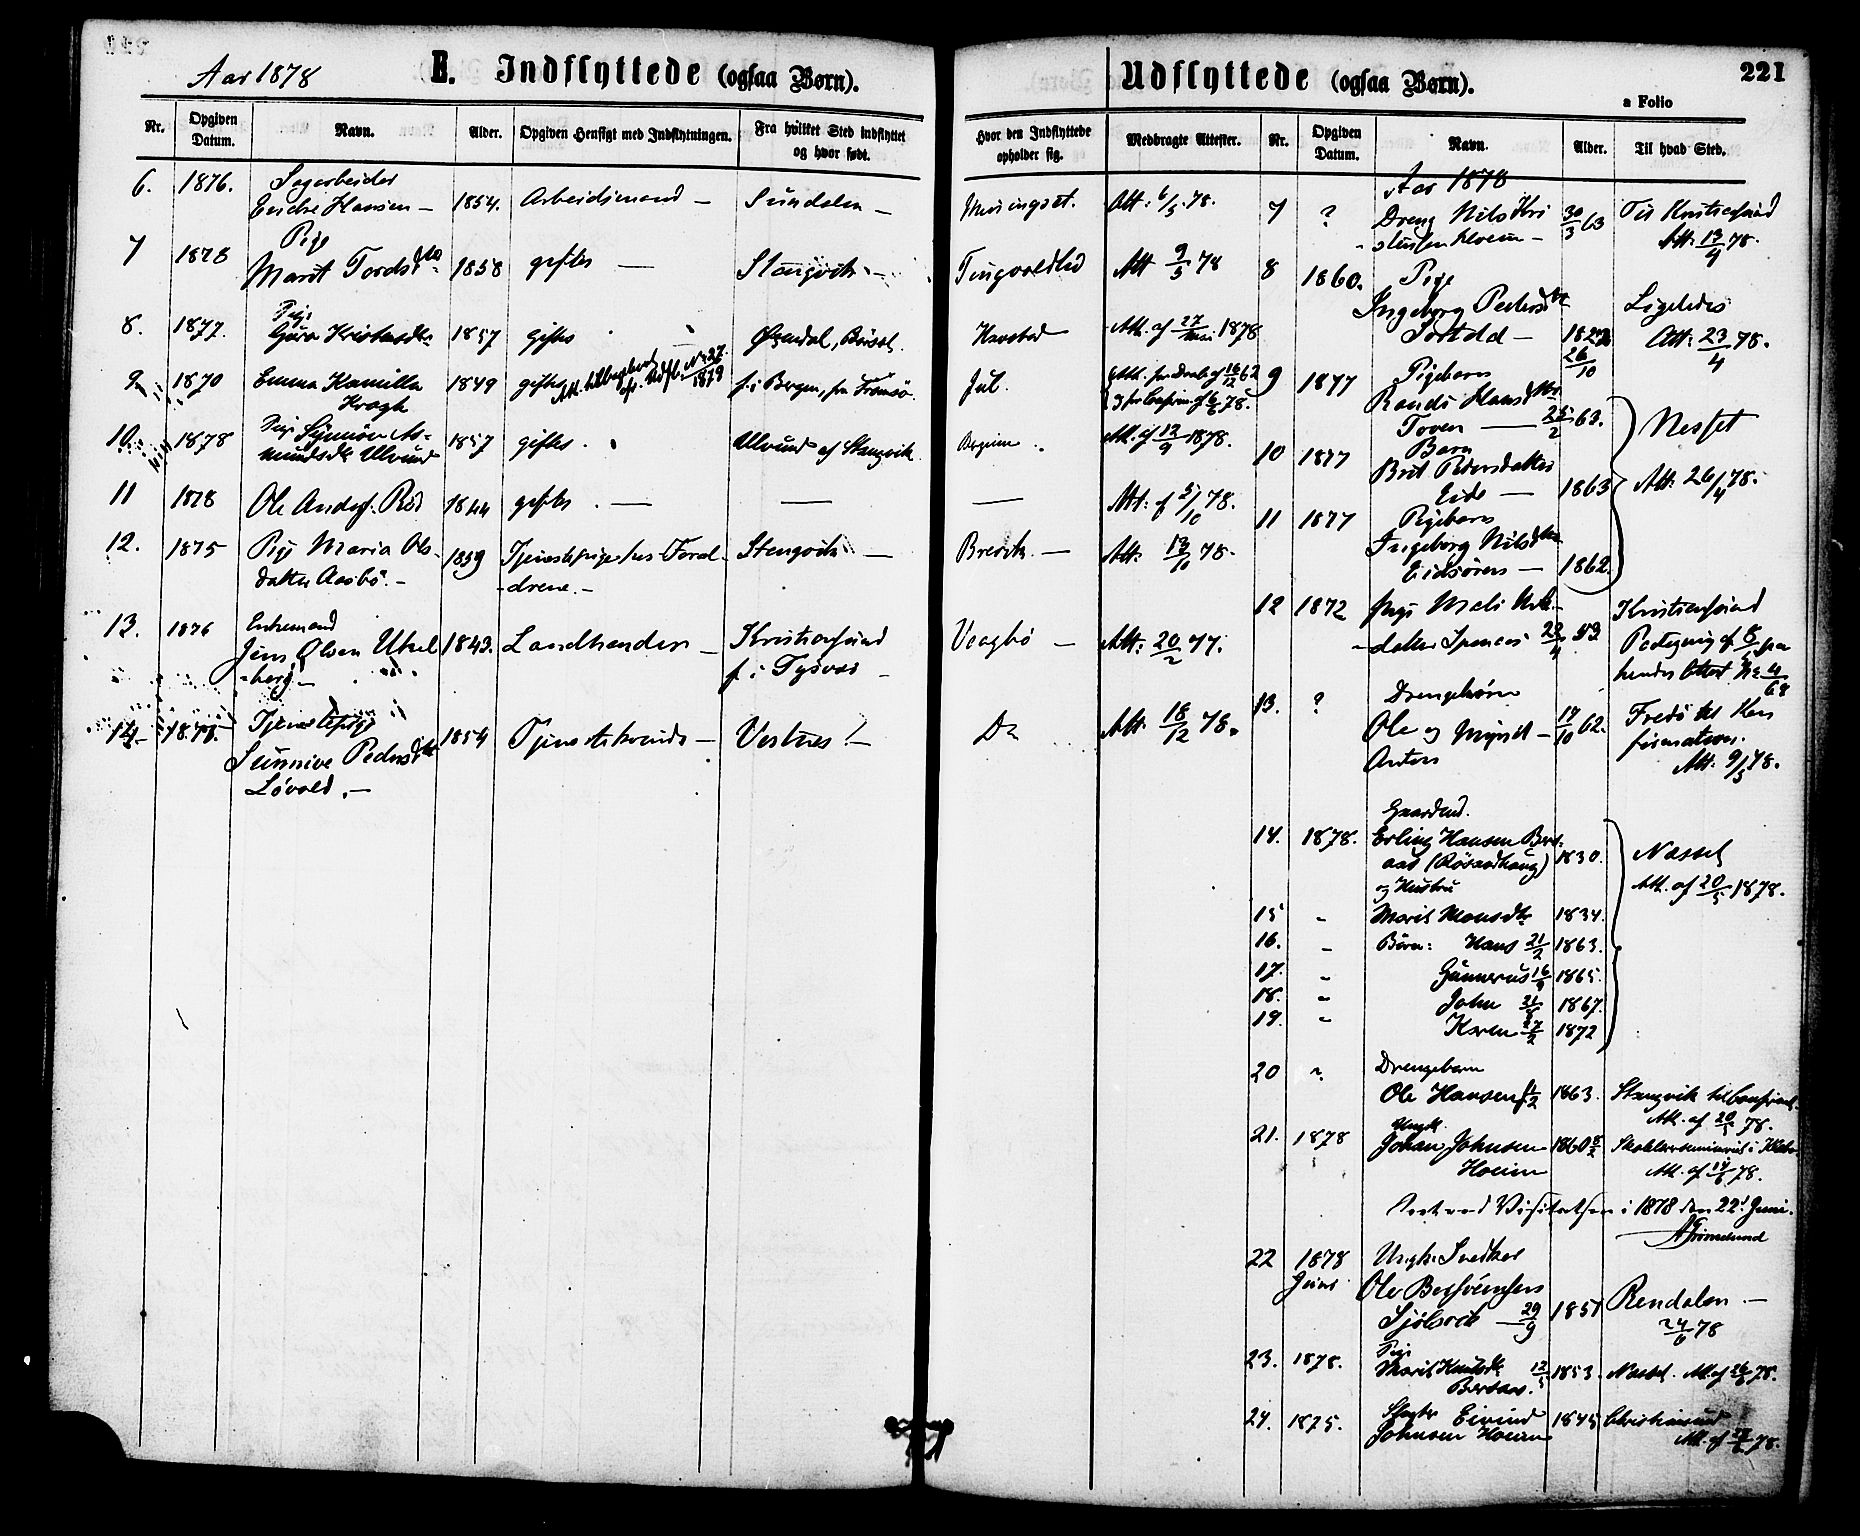 Aar 1878
E. Indflyttede (ogsaa Børn).
Nr. Opgiven Datum. Navn. Alder. Opgiven Hensigt med Indflytningen. Fra hvilket Sted indflyttet og hvor født.
Hvor den Indflyttede opholder sig. Medbragte Attester.
6. 1876. Sagarbeider
Hansen – 1854. Arbeidsmand – Sundalen – Meisingset. Att: 6/5 78.
7 1878 Pige
Marit Tordsdtr 1858 giftes — Stangvik – Tingvold Att 9/5 78
8. 1877. Pige
Guro 1857 giftes Øxendal, Havstad Att. af 27/Mai 1878
9. 1870 Emma Kamilla 1849 giftes Att. tilbagesendt cfr. Udfl. No 37 1879 f. i Bergen, fra Tromsø. Jul.
Kragh
10. 1878 Pige Synnöv As-
mundsdtr Ullvund 1857 giftes. Ullvund af Stangvik Bergeim Att. af 12/9 1878.
11 1878 Ole Anders. Röd 1844 giftes. — — — Att: af 5/10 78.
12. 1875 Pige Maria Ols-
datter Aasbö. – 1859 Tjenestepige hos Foræl-
drene. – Stangvik — Bredvik. — Att: 13/10 78.
13. 1876 Enkemand
Jens Olsen Utkel
berg – 1843. Landhandler – Kristiansund
f. i Tysvær – Vaagbö — Att: 20/2 77.
14. 1877. Tjenestepige
Sunnive Pedersdtr 1854 Tjenestekvinde – Vestnes! – Do Att: 18/12 78.
Lövold. –
Udflyttede (ogsaa Børn).
221
a Folio
Nr. Opgiven Datum. Navn. Alder. Til hvad Sted.
Aar 1878
7 ? Dreng Nils Kri
stensen – 30/3 63 Til Kristiansund
Att: 13/4 78.
8 1860. Pige
Ingeborg Pedersdtr
– 26/10 Ligeledes
Att: 23/4 78.
9 1877 Pigebarn
Randi Hansdtr
Toven — 25/2 63. Nesset
10 1877 Barn
Brit Pedersdatter
Eide — 1863 Att: 26/4 78.
11 1877 Pigebarn
Ingeborg Nilsdtr
Eidsören — 1862.
12 1872 Pige Mali
datter 53 Kristiansund
Paategning af
hendes Attest No 4/68
13. ? Drengebörn
Ole og – 17/10 62. Fredö til Kon
firmation.
Anton Att: 9/5 78.
14. 1878. Gaardmd.
Erling Hansen 1830.
(Rösandhaug)
og Hustru Nesset
Att. af 20/5 1878.
15 – Marit Monsdtr 1834.
16. – Börn: Hans 21/2 1863.
17. – Gunnerus 1865.
18. – John 1867.
19. – Karen 1872
20 ? Drengebarn
Ole Hansen 1863. Stangvik til Confirmat.
Att. af 20/5 78.
21. 1878 Ungk.
Johan Johnsen
Hoeim 1860 Skolelærerseminariet i Klæbu
Att. af 78.
ved Visitatsen i 1878 den 22. Juni.
Grimelund
22 1878 Ungk. Snedker
Juni Ole
Sjölsvik – 29/9 1851 Rendalen –
24/6 78
23. 1878. Pige
Marit Knutsdtr 12/5 1853. Nesset. Att. af 26/6 78.
24. 1875. Eivind
Johnsen Hoeim 1845 Christiansund
Att. af 78.